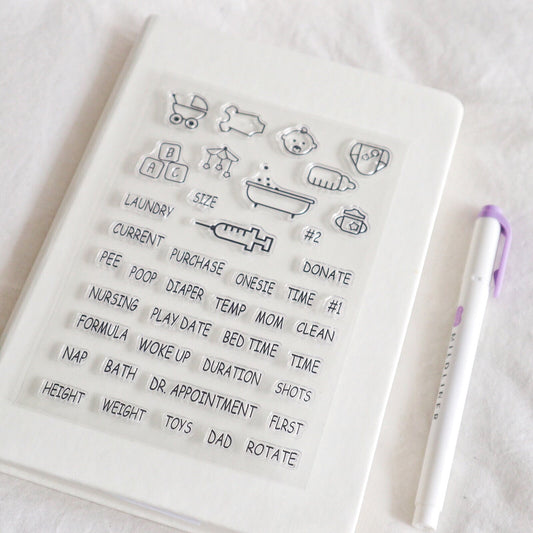 B
A C
LAUNDRY SIZE
#2
DONATE
CURRENT PURCHASE ONESIE TIME #1
PEE POOP DIAPER TEMP MOM CLEAN
NURSING PLAY DATE BED TIME TIME
FORMULA WOKE UP DURATION SHOTS
NAP BATH DR. APPOINTMENT FIRST
HEIGHT WEIGHT TOYS DAD ROTATE
MILDLINER